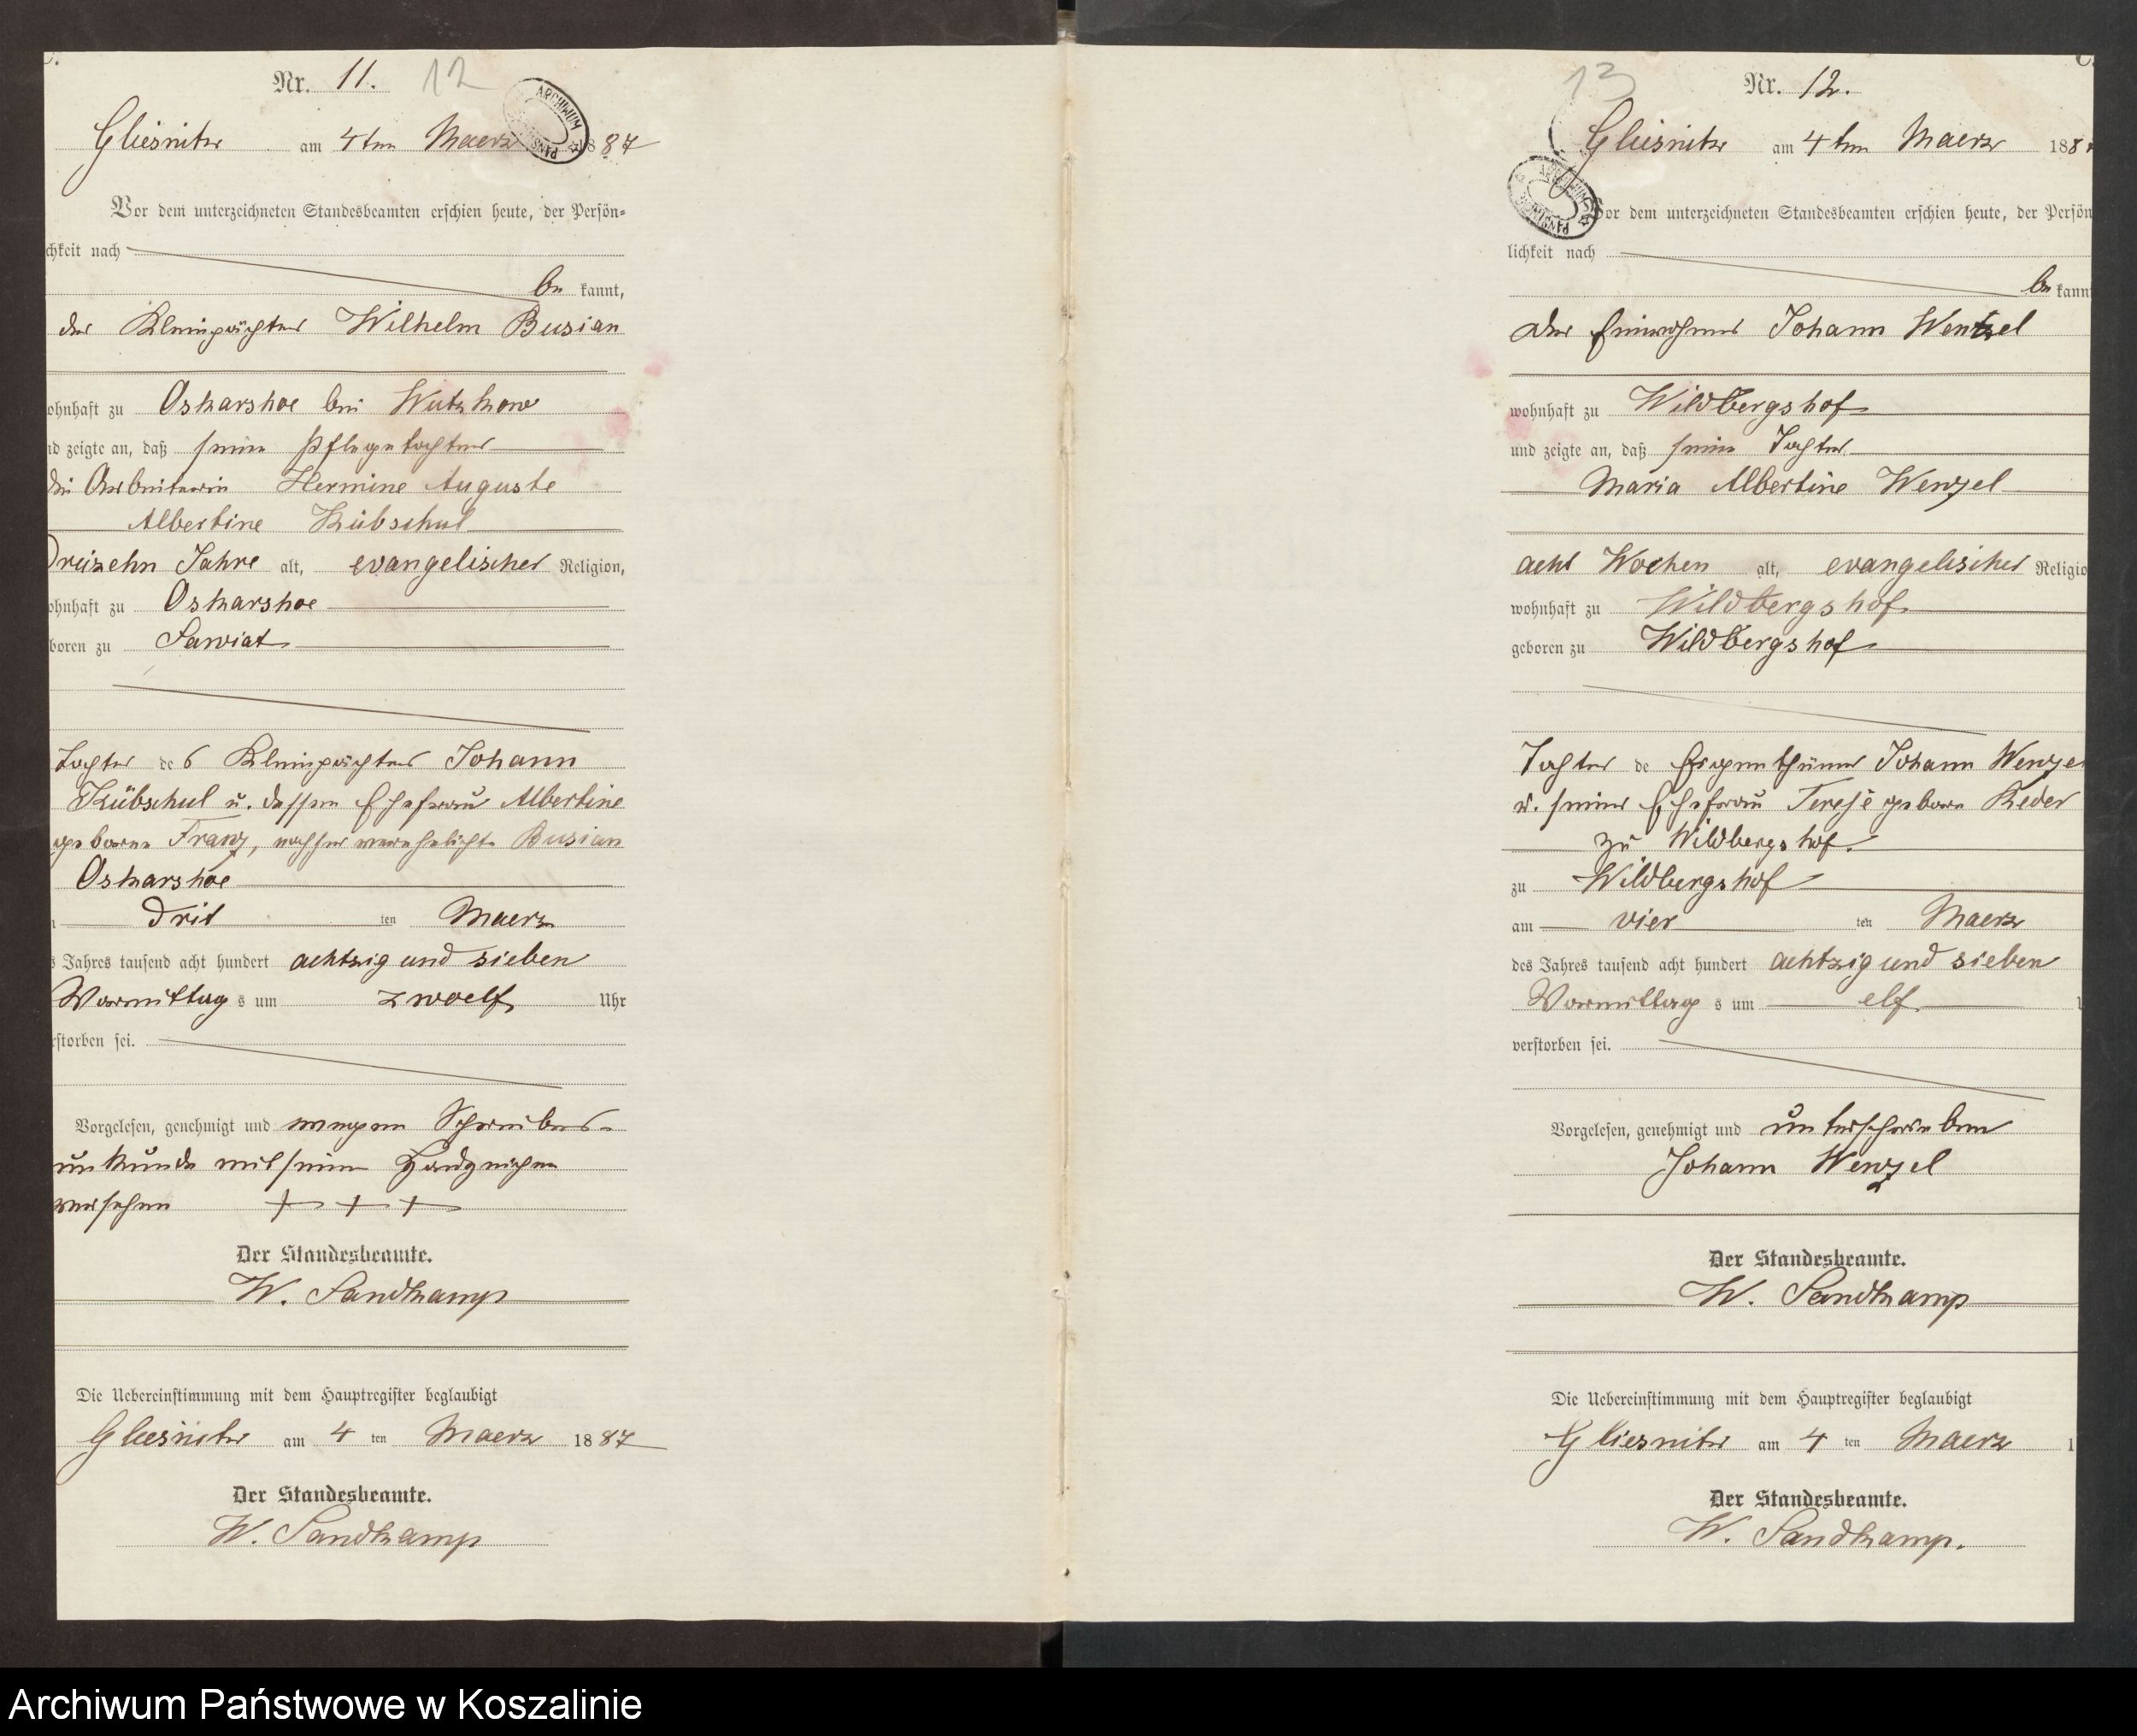 Nr. 11. 12
Gliesnitz am 4ten Maerz 1887
Vor dem unterzeichneten Standesbeamten erschien heute, der Persön=
chkeit nach
be kannt,
der Kleinpächter Wilhelm Busian
ohnhaft zu Oskarshoe bei Wutzkow
nd zeigte an, daß seine Pflegetochter
die Arbeiterin Hermine Auguste
Albertine Kübschul
Dreizehn Jahre alt, evangelischer Religion,
ohnhaft zu Oskarshoe
boren zu Sawiat
Tochter des Kleinpächters Johann
Kübschul u. dessen Ehefrau Albertine
geborne Franz, nachher verehelichte Busian
Oskarshoe
drit ten Maerz
s Jahres tausend acht hundert achtzig und sieben
Vormittag s um zwoelf Uhr
rstorben sei.
Vorgelesen, genehmigt und wegen Schreibens-
unkunde mit seinem Handzeichen
versehen + + +
Der Standesbeamte.
W. Sandkamp
Die Uebereinstimmung mit dem Hauptregister beglaubigt
Gliesnitz am 4 ten Maerz 1887
Der Standesbeamte.
W. Sandkamp
13 Nr. 12.
Gliesnitz am 4ten Maerz 188
Vor dem unterzeichneten Standesbeamten erschien heute, der Persön
lichkeit nach
be kann
der Einwohner Johann Wentzel
wohnhaft zu Wildbergshof
und zeigte an, daß seine Tochter
Maria Albertine Wenzel
acht Wochen alt, evangelischer Religio
wohnhaft zu Wildbergshof
geboren zu Wildbergshof
Tochter de Eigenthümer Johann Wenzel
u. seiner Ehefrau Terese geborne Reder
zu Wildbergshof.
zu Wildbergshof
am vier ten Maerz
des Jahres tausend acht hundert achtzig und sieben
Vormittag s um elf
verstorben sei.
Vorgelesen, genehmigt und unterschrieben
Johann Wenzel
Der Standesbeamte.
W. Sandkamp
Die Uebereinstimmung mit dem Hauptregister beglaubigt
Gliesnitz am 4 ten Maerz 1
Der Standesbeamte.
W. Sandkamp.
Archiwum Państwowe w Koszalinie